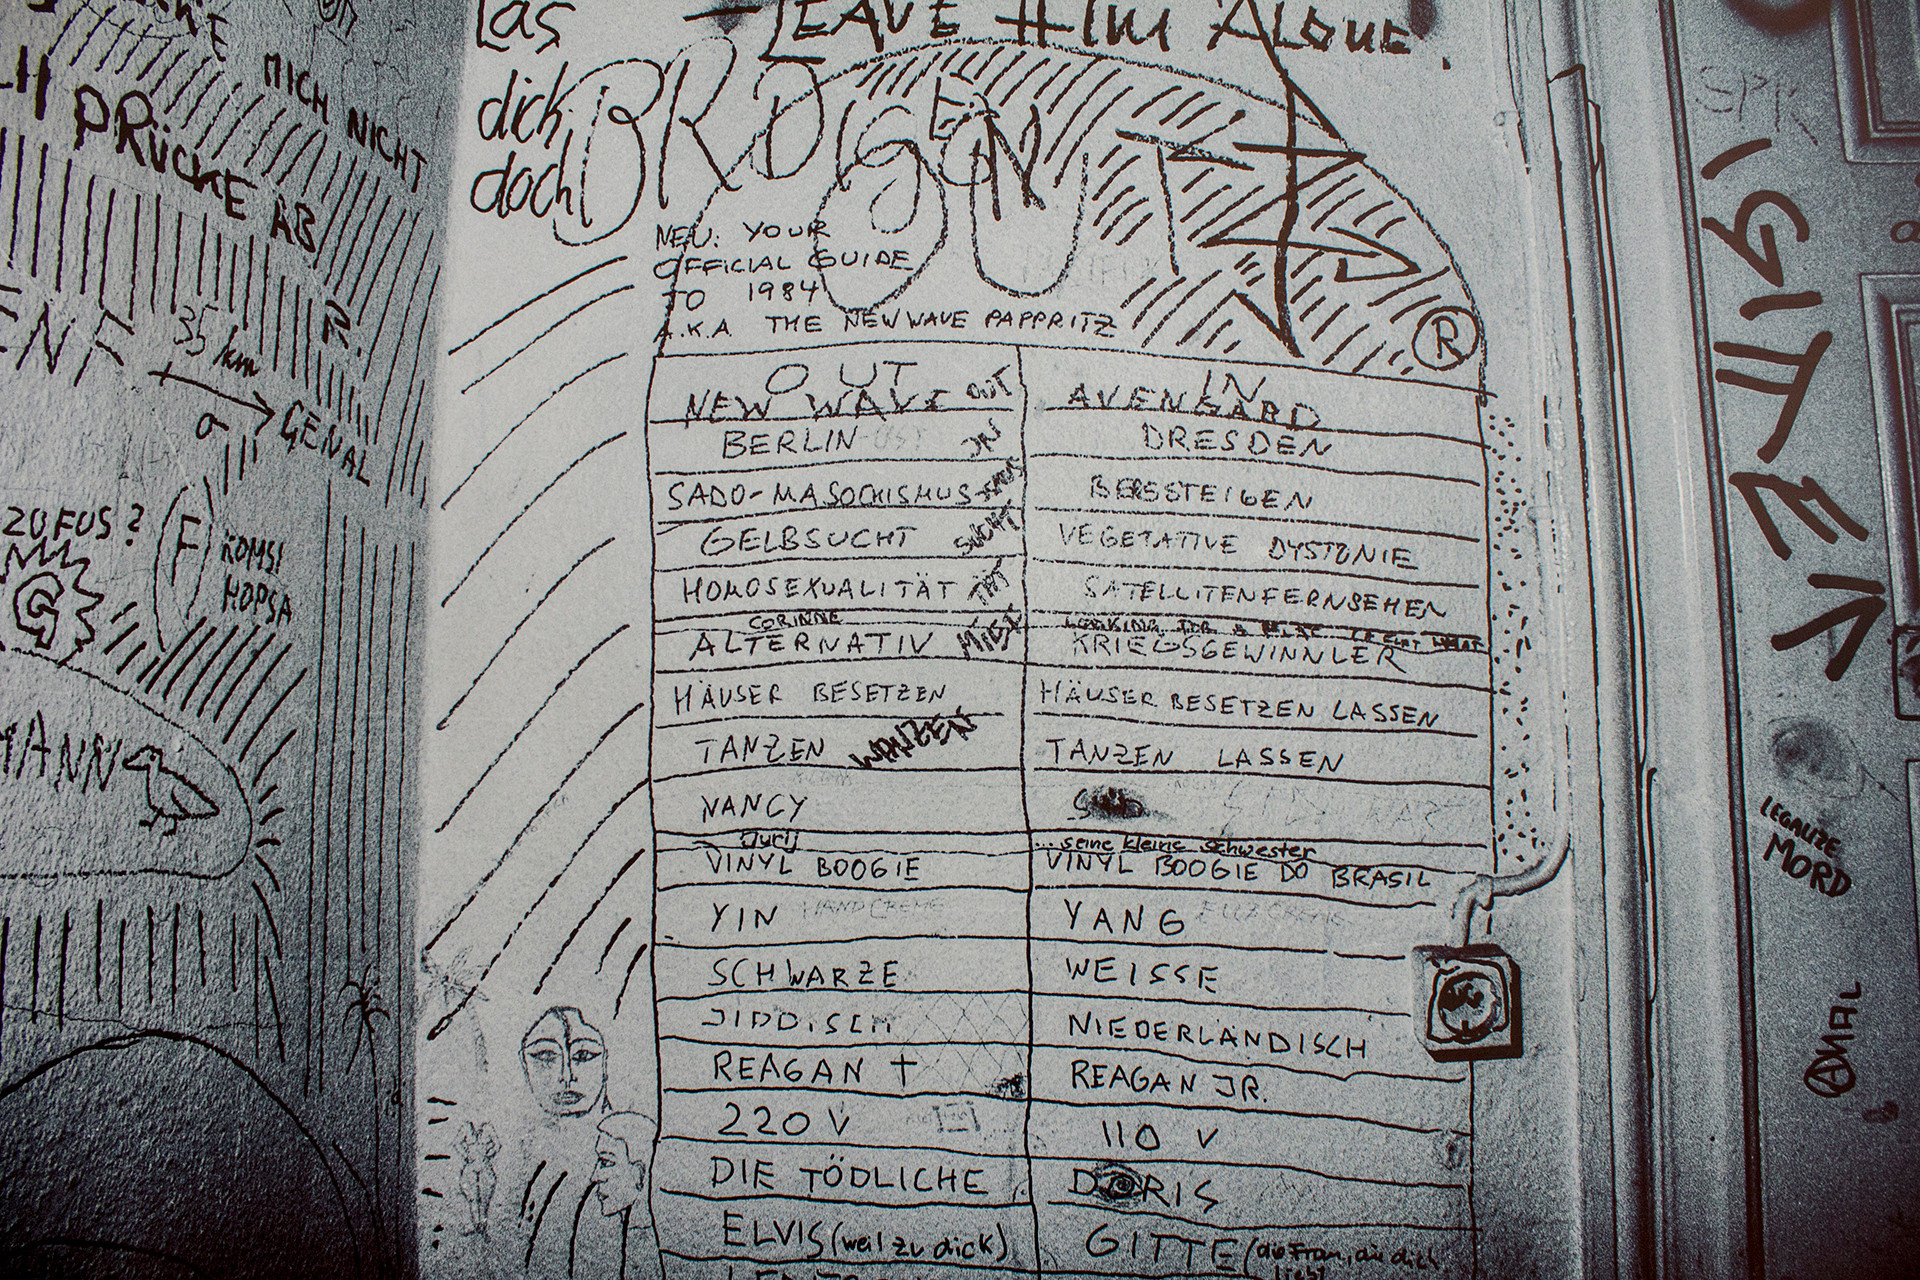 MICH NICHT
PRÜCKE AB
R.
35/km
GENIAL
ZU FUS?
F
G
HOPSA
MANN
Las
dich
doch
LEAVE HIM ALONE.
OUT
NEU: YOUR
OFFICIAL GUIDE
TO 1984
A.K.A THE NEW WAVE PAPPRITZ
R
OUT IN
NEW WAVE OUT AVENGARD
BERLIN IN DRESDEN
SADO-MASOCHISMUS BERGSTEIGEN
GELBSUCHT SUCHT VEGETATIVE DYSTONIE
HOMOSEXUALITÄT TÄT SATELLITENFERNSEHEN
CORINNE LOOKING FOR A
ALTERNATIV MIST KRIEGSGEWINNLER
HÄUSER BESETZEN HÄUSER BESETZEN LASSEN
TANZEN WANZEN TANZEN LASSEN
NANCY SID
Jurij ... seine kleine Schwester
VINYL BOOGIE VINYL BOOGIE DO BRASIL
YIN HANDCREME YANG
SCHWARZE WEISSE
JIDDISCH NIEDERLÄNDISCH
REAGAN † REAGAN JR.
220 V 110 V
DIE TÖDLICHE DORIS
ELVIS (weil zu dick) GITTE (die Frau, die dich
liebt
GITTE
LEGALIZE
MORD
ANAL